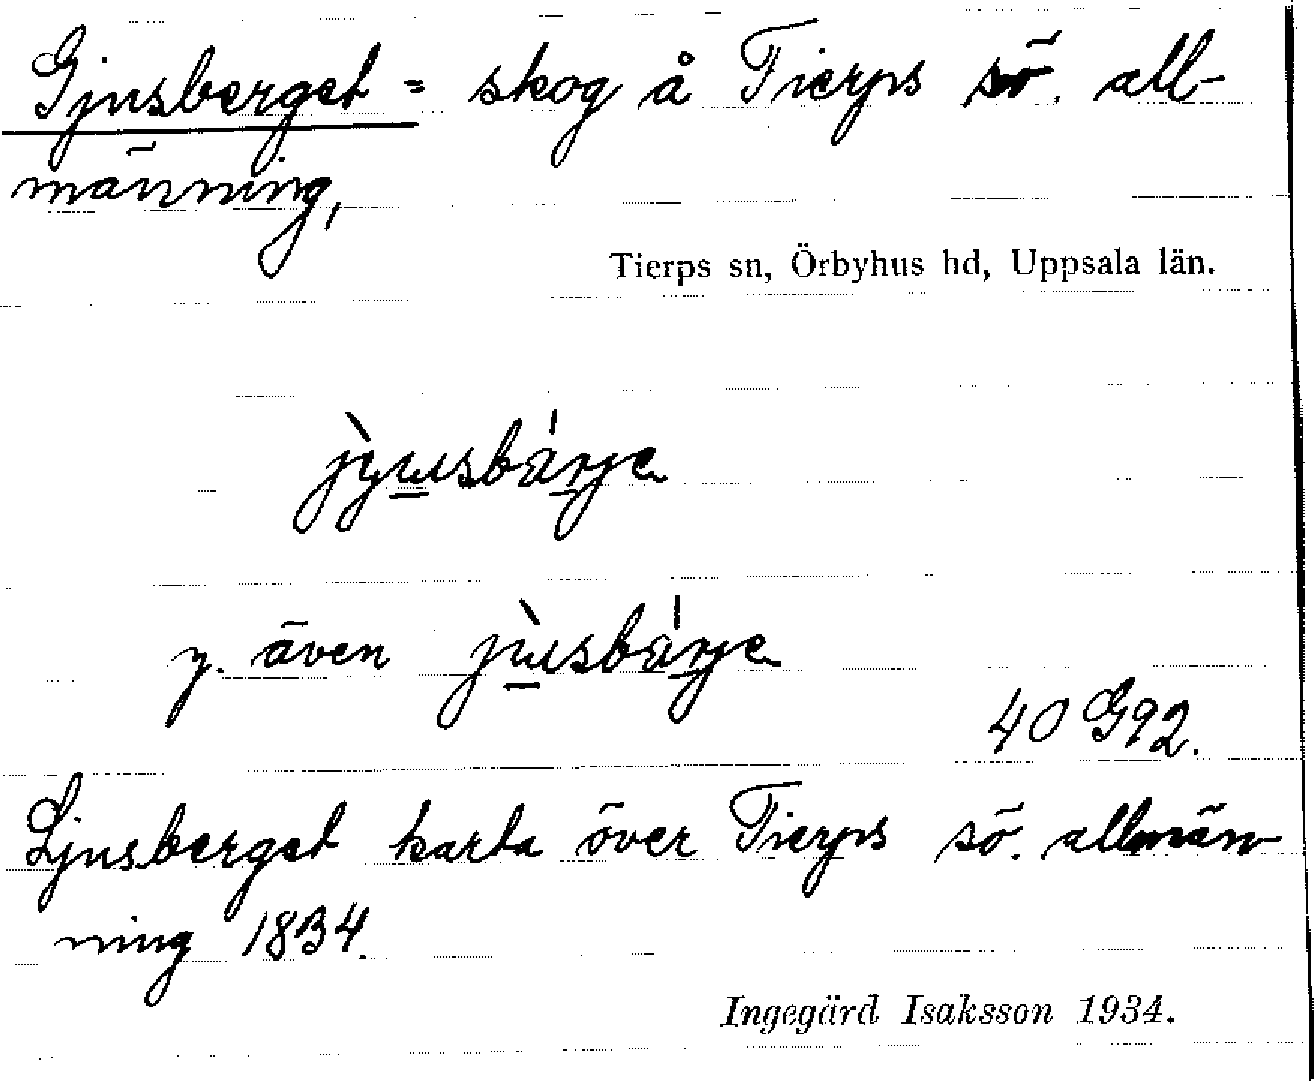 Gjusberget = skog å Tierps sö. all-
männing,
Tierps sn, Örbyhus hd, Uppsala län.
jỳusbä́rje
y. även jùsbä́rje
40 G92.
Ljusberget karta över Tierps sö. allmän-
ning 1834.
Ingegärd Isaksson 1934.